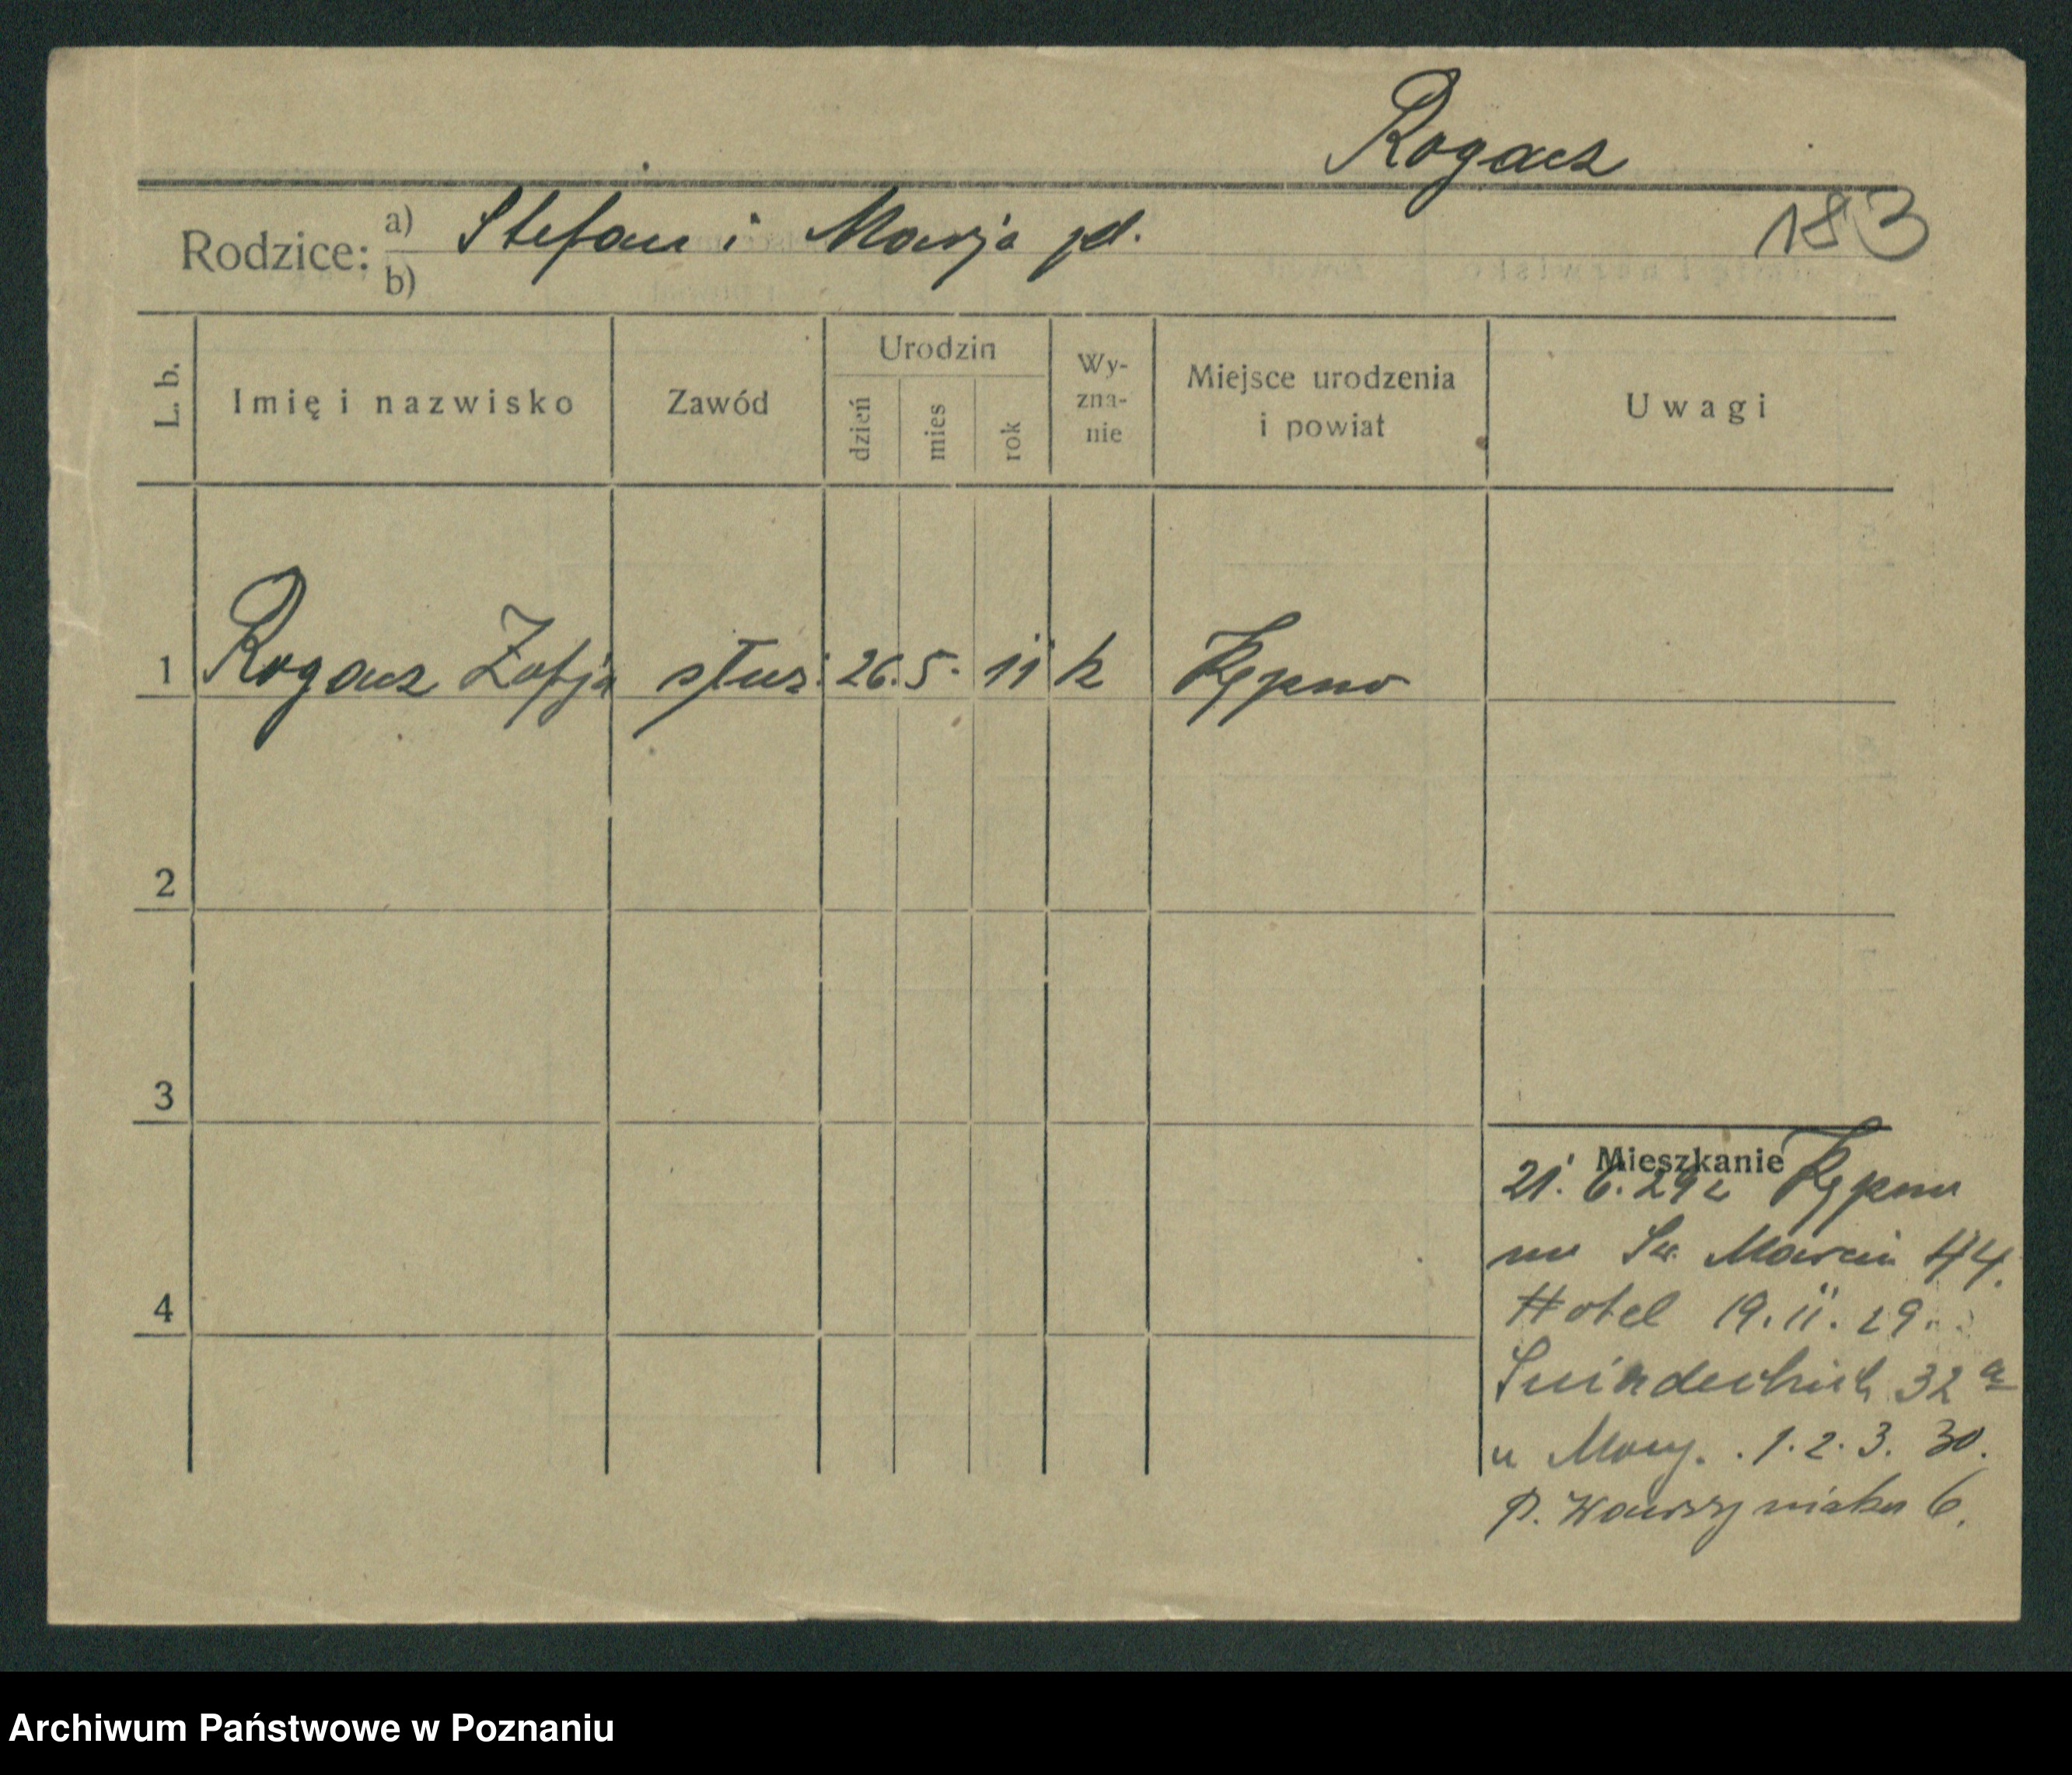 Rogacz
183
Rodzice: a) Stefan i Marja jd.
b)
L. b. Imię i nazwisko Zawód Urodzin dzień mies rok Wy-zna-nie Miejsce urodzenia i powiat Uwagi
1 Rogacz Zofja służ. 26. 5. 11 k Kępno
2
3
4
Mieszkanie
21. 6. 29 z Kępna
na Św. Marcin 44.
Hotel 19. 11. 29.
Śniadeckich 32 a
u Mory. . 1. 2. 3. 30.
P. Wawrzyniaka 6.
Archiwum Państwowe w Poznaniu